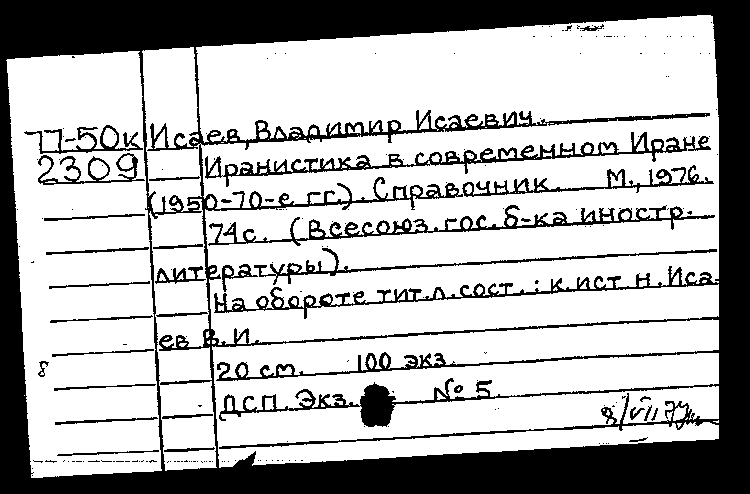 77-50к Исаев, Владимир Исаевич.
2309 Иранистика в современном Иране
(1950-70-е гг.). Справочник. М., 1976.
74с. (Всесоюз. гос. б-ка иностр.
литературы).
На обороте тит. л. сост.: к. ист. н. Иса-
ев В. И.
8 20 см. 100 экз.
ДСП. Экз. № 5.
8/VII 77